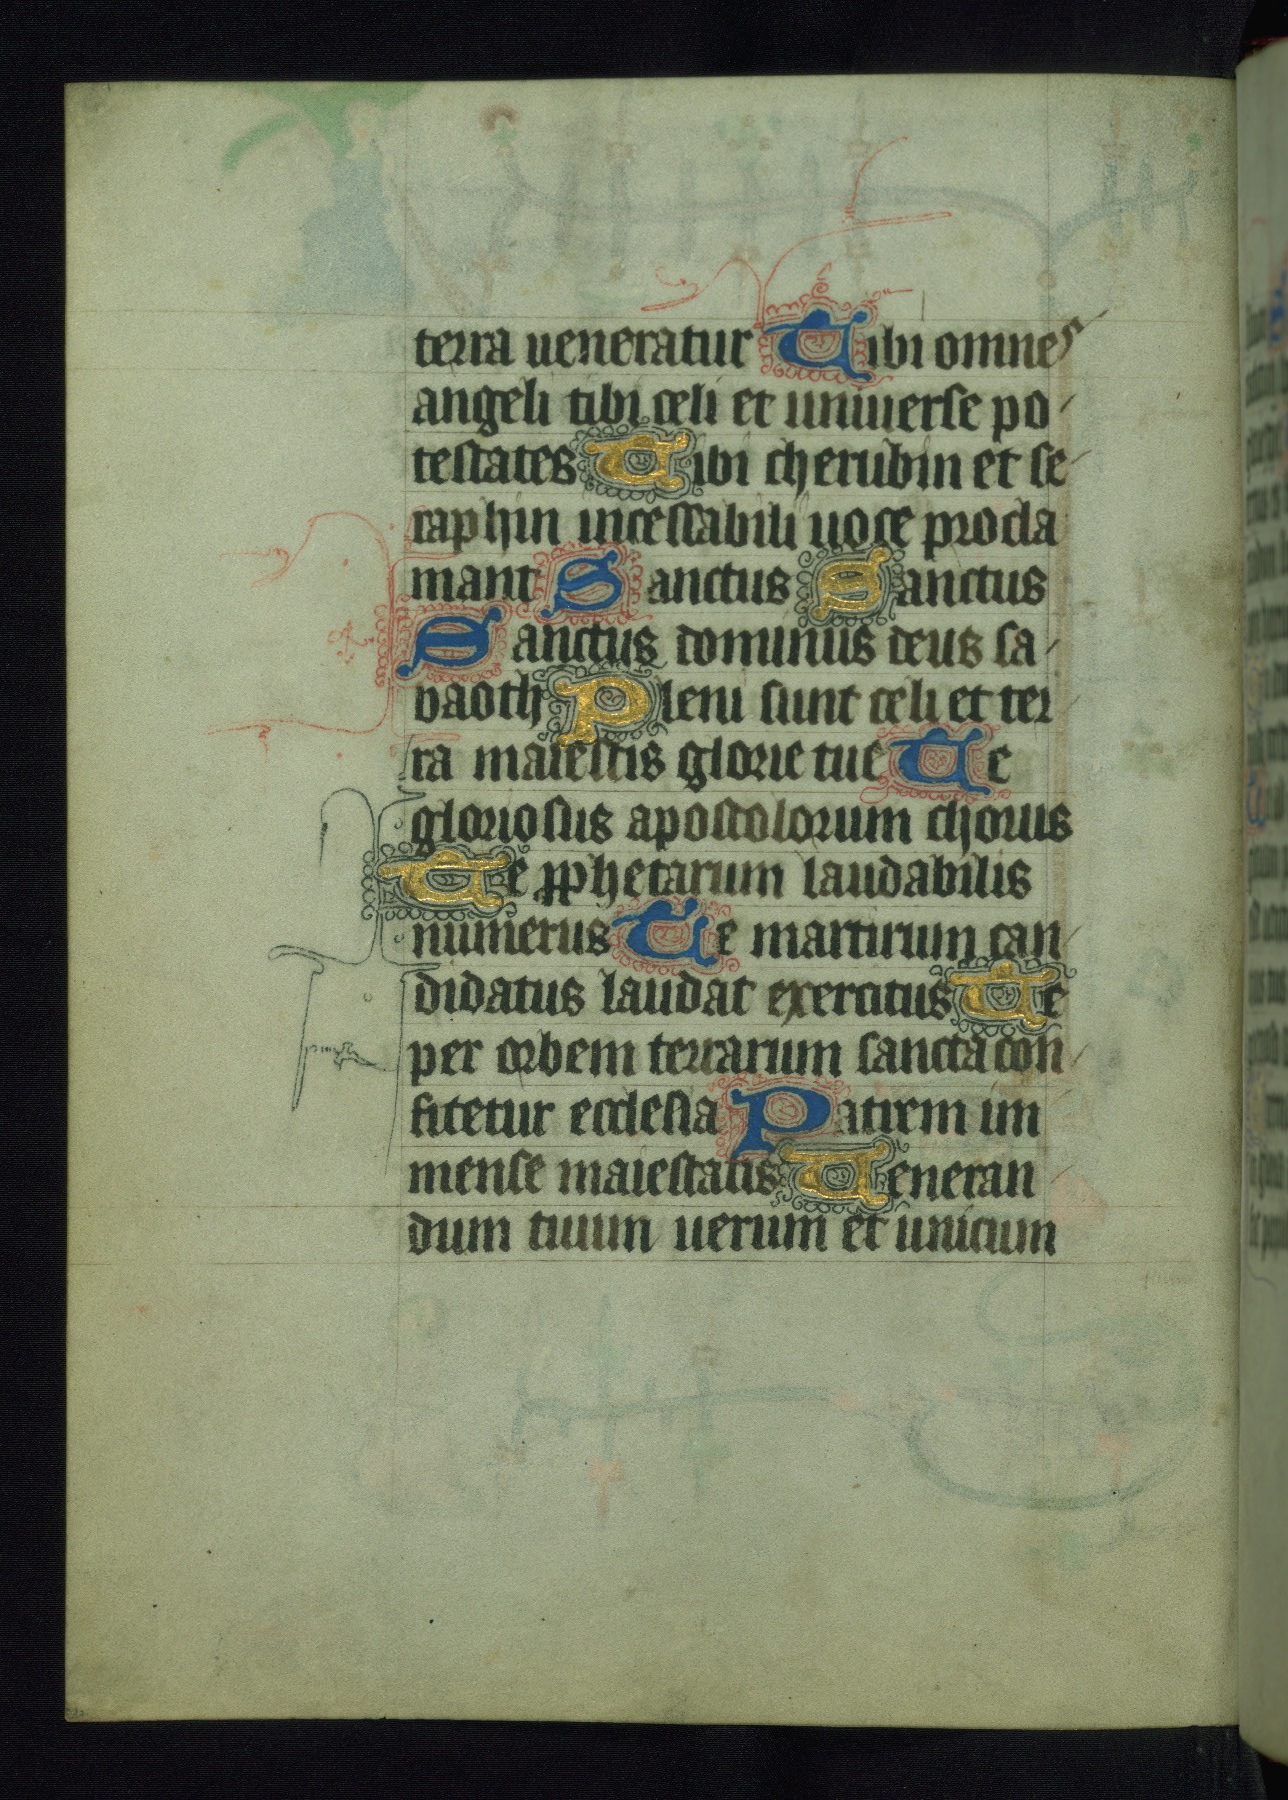 terra ueneratur Tibi omnes
angeli tibi celi et uniuerse po
testates Tibi cherubin et se
raphin incessabili uoce procla
mant Sanctus Sanctus
Sanctus dominus deus sa
baoth Pleni sunt celi et ter
ra maiestis glorie tue Te
gloriosus apostolorum chorus
Te pphetarum laudabilis
numerus Te martirum can
didatus laudat exercitus Te
per orbem terrarum sancta con
fitetur ecclesia Patrem im
mense maiestatis Ueneran
dum tuum uerum et unicum